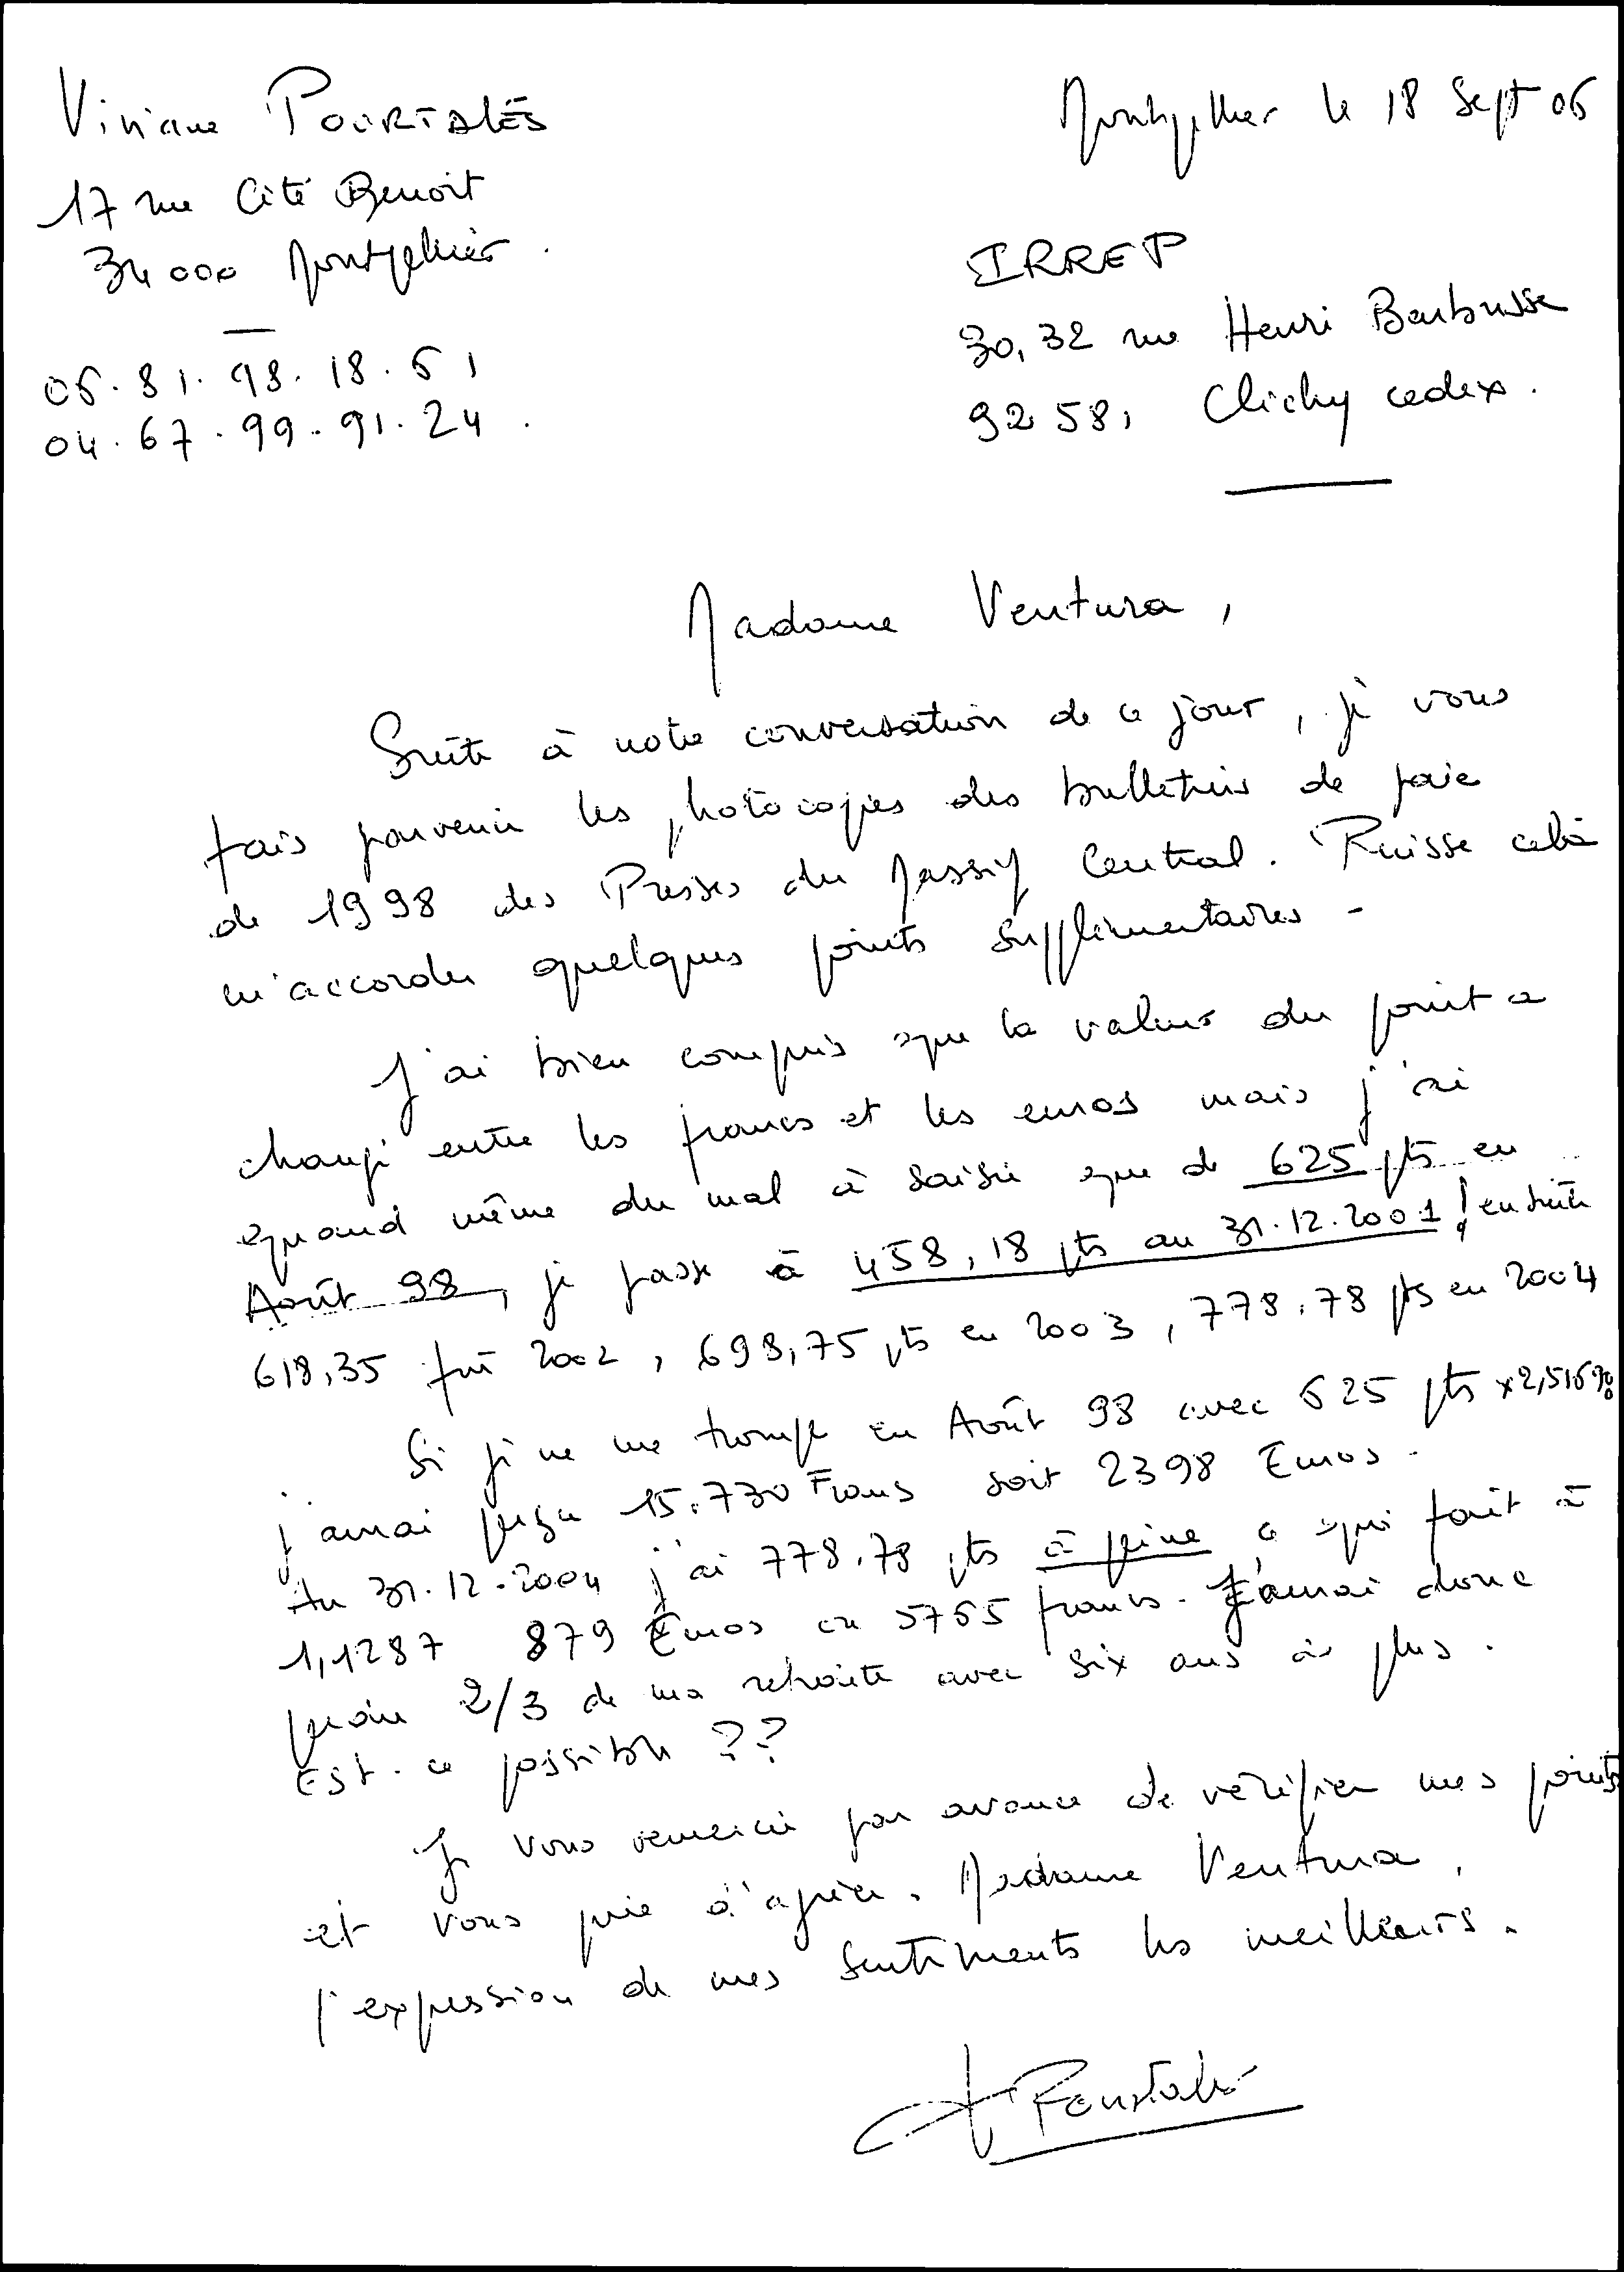 Viviane POURTALÈS
17 rue Cité Benoit
34000 Montpellier.
06.81.98.18.61
04.67.99.91.24.
Montpellier le 18 Sept 06
IRREP
30,32 rue Henri Barbusse
92581 Clichy cedex.
Madame Ventura,
Suite à notre conversation de ce jour, je vous
fais parvenir les photocopies des bulletins de paie
de 1998 des Presses du Massif Central. Puisse cela
m'accorder quelques points supplémentaires -
J'ai bien compris que la valeur du point a
changé entre les francs et les euros mais j'ai
quand même du mal à saisir que de 625 pts en
Août 98, je passe à 458,18 pts au 31.12.2001 ! ensuite
618,35 fin 2002, 698,75 pts en 2003, 778.78 pts en 2004
Si je ne me trompe en Août 98 avec 625 pts x 2,5169
j'aurai perçu 15.730 Francs soit 2398 Euros.
Au 31.12.2004 j'ai 778.78 pts à peine ce qui fait à
1,1287 879 Euros ou 5765 francs. J'aurai donc
perdu 2/3 de ma retraite avec six ans de plus.
Est-ce possible ??
Je vous remercie par avance de vérifier mes points
et vous prie d'agréer, Madame Ventura,
l'expression de mes sentiments les meilleurs.
Pourtalès